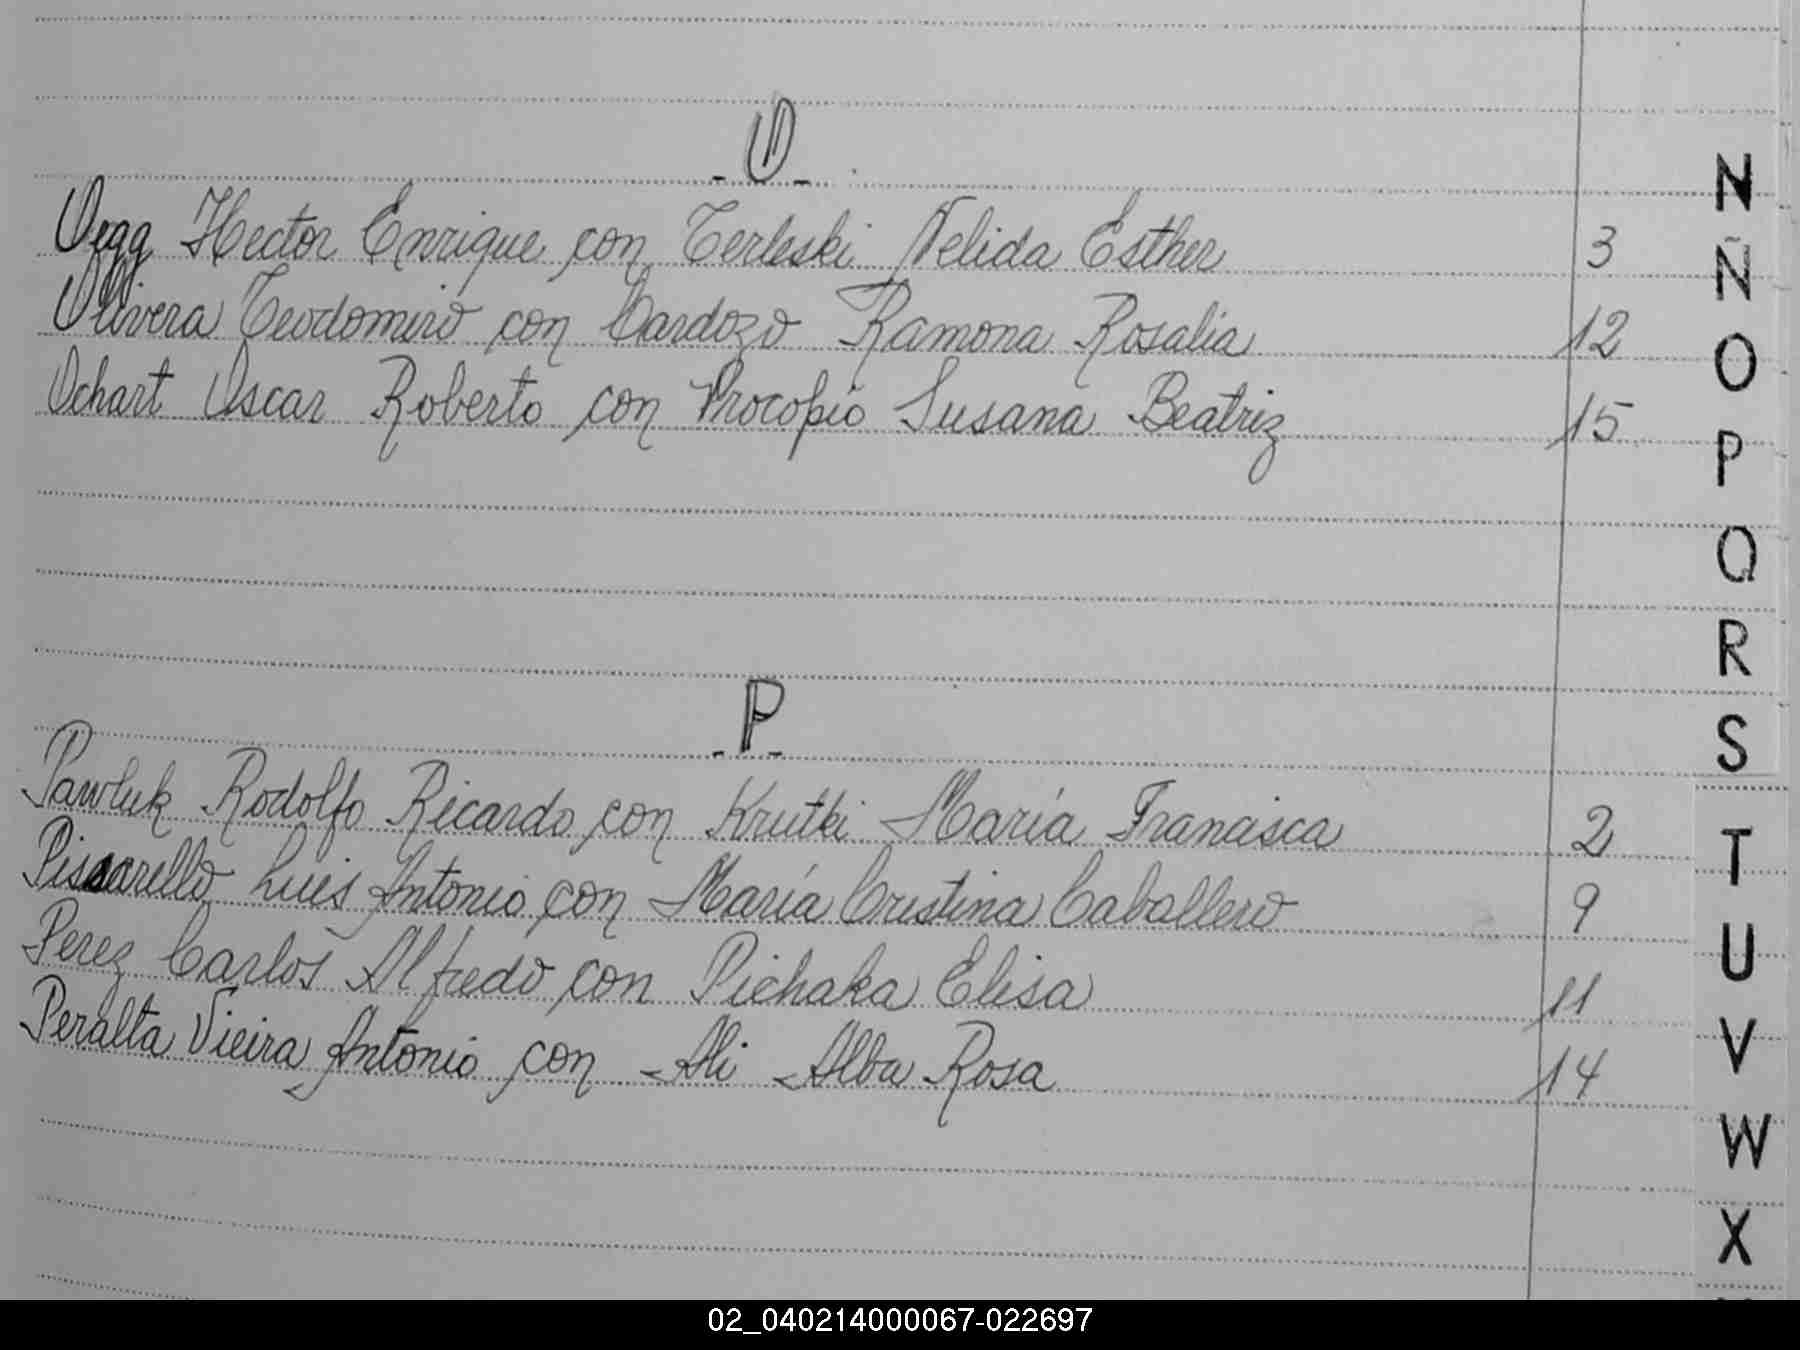 - O -
Ogg Hector Enrique con Terleski Nelida Esther 3
Olivera Teodomiro con Cardozo Ramona Rosalia 12
Ochart Oscar Roberto con Procopio Susana Beatriz 15
- P -
Pawluk Rodolfo Ricardo con Krutki María Francisca 2
Pissarello Luis Antonio con María Cristina Caballero 9
Perez Carlos Alfredo con Pichaka Elisa 11
Peralta Vieira Antonio con Ali Alba Rosa 14
N
Ñ
O
P
Q
R
S
T
U
V
W
X
02_040214000067-022697